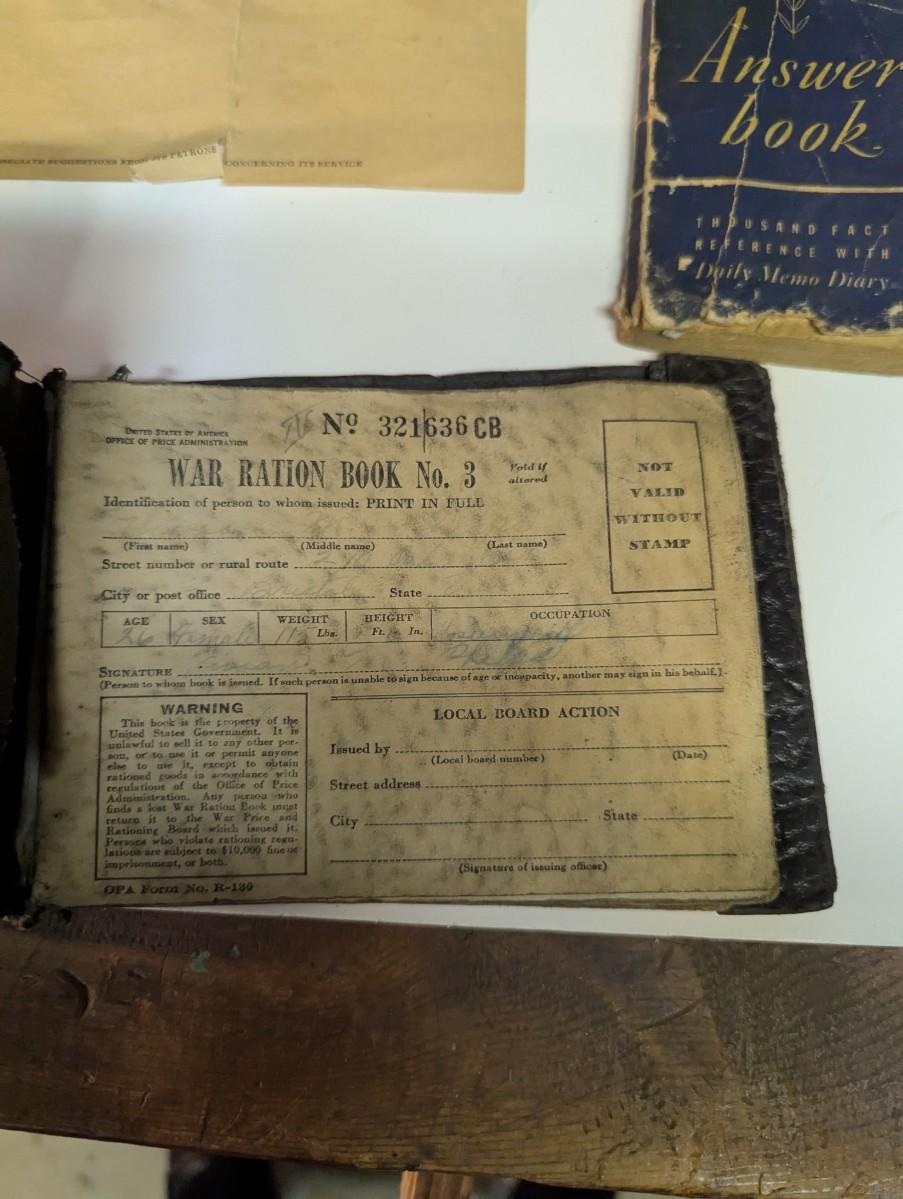 SUGGESTIONS FROM ITS PATRONS CONCERNING ITS SERVICE
Answer
book
THOUSAND FACT
REFERENCE WITH
Daily Memo Diary
UNITED STATES OF AMERICA
OFFICE OF PRICE ADMINISTRATION
No 321636 CB
WAR RATION BOOK No. 3
Void if
altered
NOT
VALID
WITHOUT
STAMP
Identification of person to whom issued: PRINT IN FULL
(First name) (Middle name) (Last name)
Street number or rural route
City or post office State
AGE SEX WEIGHT HEIGHT OCCUPATION
26 Female Lbs. Ft. In.
SIGNATURE
(Person to whom book is issued. If such person is unable to sign because of age or incapacity, another may sign in his behalf.)
WARNING
This book is the property of the
United States Government. It is
unlawful to sell it to any other per-
son, or to use it or permit anyone
else to use it, except to obtain
rationed goods in accordance with
regulations of the Office of Price
Administration. Any person who
finds a lost War Ration Book must
return it to the War Price and
Rationing Board which issued it.
Persons who violate rationing regu-
lations are subject to $10,000 fine or
imprisonment, or both.
LOCAL BOARD ACTION
Issued by
(Local board number) (Date)
Street address
City State
(Signature of issuing officer)
OPA Form No. R-130